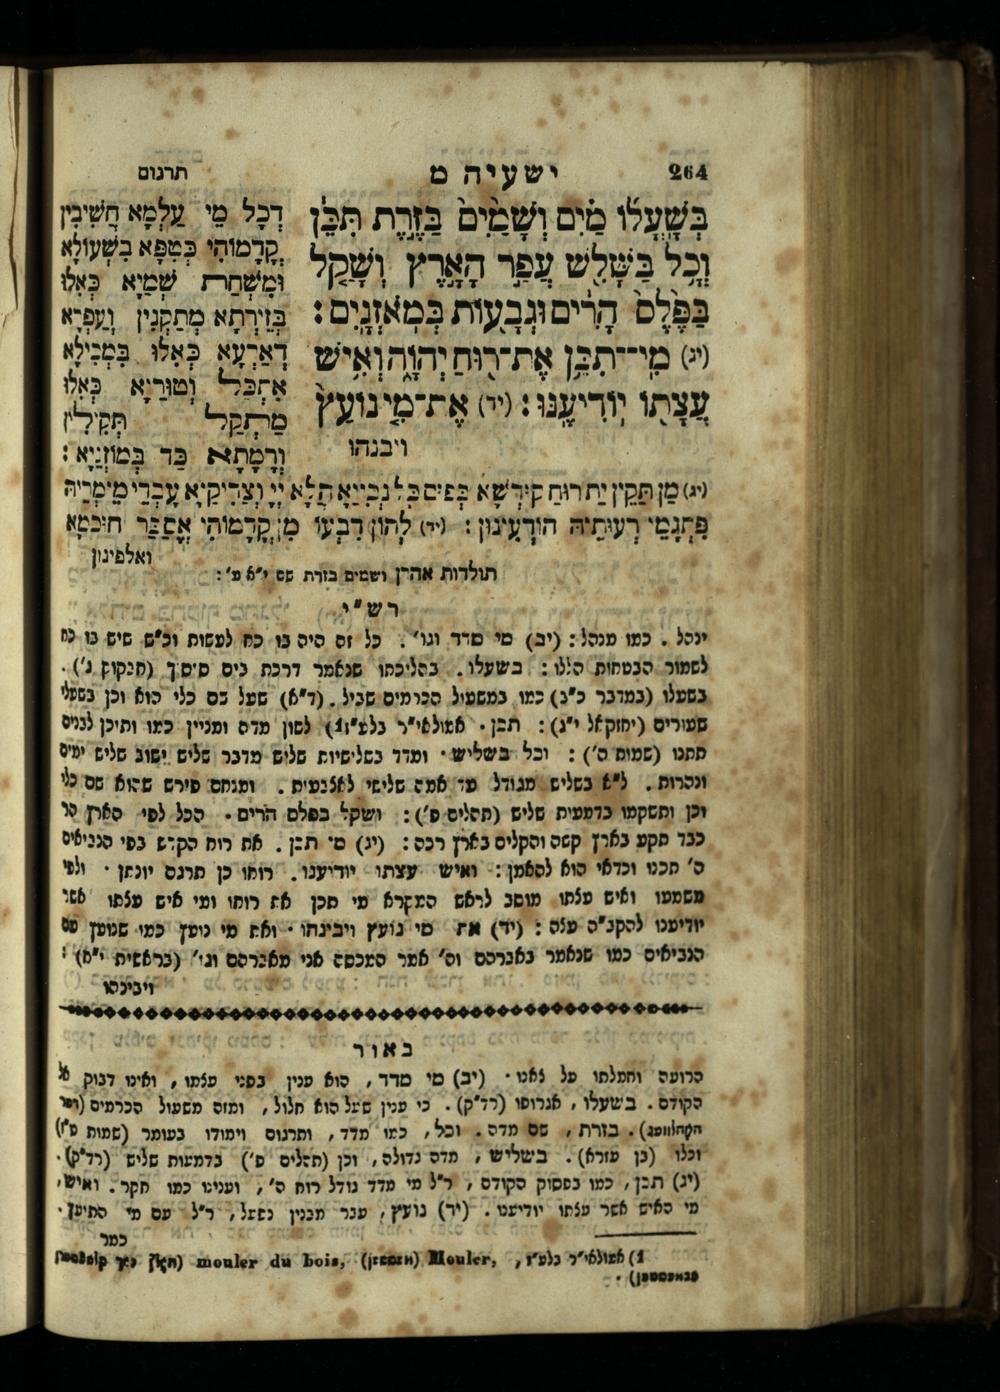 264
ישעיה מ
תרגום
בְּשָׁעֳלוֹ מַיִם וְשָׁמַיִם בַּזֶּרֶת תִּכֵּן
וְכָל בַּשָּׁלִשׁ עֲפַר הָאָרֶץ וְשָׁקַל
בַּפֶּלֶס הָרִים וּגְבָעוֹת בְּמֹאזְנָיִם :
(יג) מִי־תִכֵּן אֶת־רוּחַ יְהוָה וְאִישׁ
עֲצָתוֹ יוֹדִיעֶנּוּ : (יד) אֶת־מִי נוֹעַץ
ויבנהו
דְכָל מֵי עַלְמָא חֲשִׁיבִין
קֳדָמוֹהִי כְּטִפָּא בְשָׁעוֹלָא
וּמִשְׁחַת שְׁמַיָא כְּאִלוּ
בְּזֵירְתָא מְתַקְנִין וְעַפְרָא
דְאַרְעָא כְּאִלוּ בִּמְכִילָא
אִתְכַל וְטוּרַיָא כְּאִלוּ
מַתְקַל תְּקִילִין
וְרָמָתָא כַד בְּמוֹזַנְיָא :
(יג) מַן תַּקֵין יַת רוּחַ קוּדְשָׁא בְּפוּם כָּל נְבִיַיָא הֲלָא יְיָ וְצַדִיקַיָא עָבְדֵי מֵימְרֵיהּ
פִּתְגָמֵי רְעוּתֵיהּ הוֹדְעִינוּן : (יד) לְהוֹן דִבְעוֹ מִן קֳדָמוֹהִי אַסְבַּר חוּכְמָא
ואלפינון
תולדות אהרן ושמים בזרת שם י״א מ׳ :
רש״י
ינהל . כמו מנהל : (יב) מי מדד וגו׳ . כל זה היה בו כח לעשות וכ״ש שיש בו כח
לשמור הבטחות הללו : בשעלו . בהליכתו שנאמר דרכת בים סוסך (חבקוק ג׳) .
בשעלו (במדבר כ״ב) כמו במשעול הכרמים שביל . (ד״א) שעל שם כלי הוא וכן בשעלי
שעורים (יחזקאל י״ג) : תכן . אמולאי״ר בלע״ז 1) לשון מדה ומניין כמו ותוכן לבנים
תתנו (שמות ה׳) : וכל בשליש . ומדד בשלישיות שליש מדבר שליש ישוב שליש ימים
ונהרות . ל״א בשליש מגודל עד אמה שלישי לאצבעות . ומנחם פירש שהוא שם כלי
וכן ותשקמו בדמעות שליש (תהלים פ׳) : ושקל בפלס הרים . הכל לפי הארץ הר
כבד תקע בארץ קשה והקלים בארץ רכה : (יג) מי תכן . את רוח הקדש בפי הנביאים
ה׳ תכנו וכדאי הוא להאמן : ואיש עצתו יודיענו . רוחו כן תרגם יונתן . ולפי
משמעו ואיש עצתו מוסב לראש המקרא מי תכן את רוחו ומי איש עצתו אשר
יודיענו להקב״ה עצה : (יד) את מי נועץ ויבינהו . ואת מי נועץ כמו שנועץ עם
הנביאים כמו שנאמר באברהם וה׳ אמר המכסה אני מאברהם וגו׳ (בראשית י״ח) :
ויבינהו
באור
הרועה וחמלתו על צאנו . (יב) מי מדד , הוא ענין בפני עצמו , ואינו דבוק אל
הקודם . בשעלו , אגרופו (רד״ק) . כי ענין שעל הוא חלול , ומזה משעול הכרמים
בזרת , שם מדה . וכל , כמו מדד , ותרגום וימודו בעומר (שמות ט״ז)
וכלו (בן עזרא) . בשליש , מדה גדולה , וכן (תהלים פ׳) בדמעות שליש (רד״ק) .
(יג) תכן , כמו בפסוק הקודם , ר״ל מי מדד גודל רוח ה׳ , וענינו כמו חקר . ואיש ,
מי האיש אשר עצתו יודיענו . (יד) נועץ , עבר מבנין נפעל , ר״ל עם מי התיעץ .
כמר
1) אמולאי״ר בלע״ז , Mouler, mouler du bois,